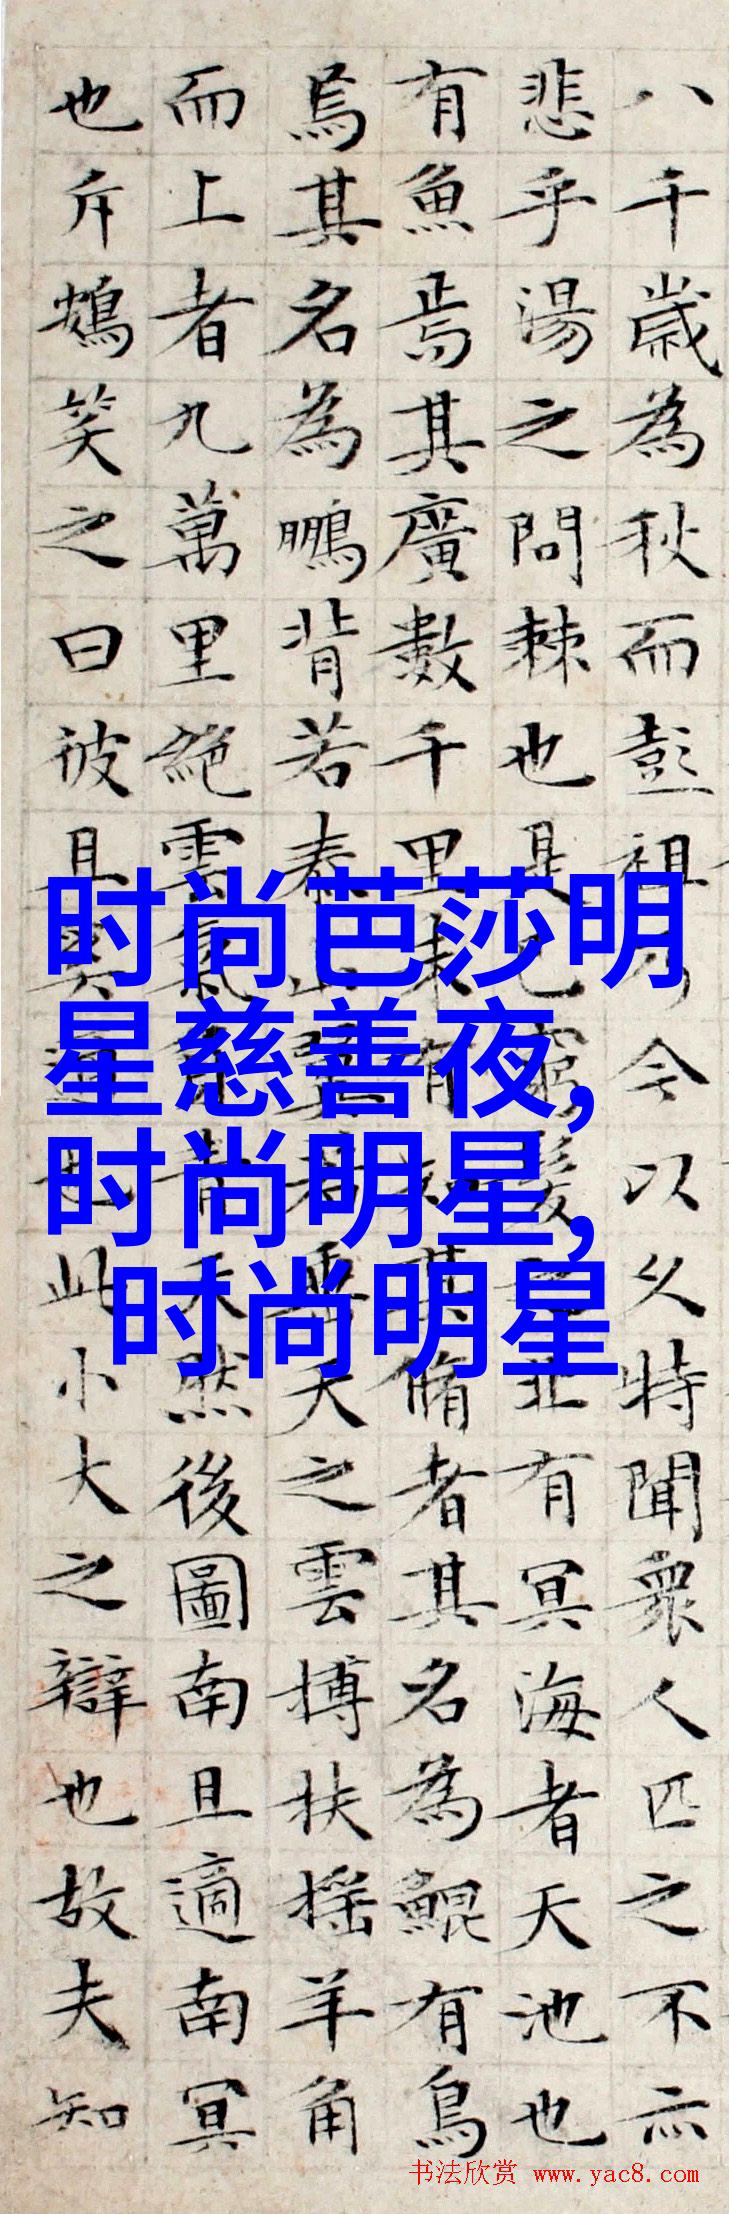 八千歲為秋而彭祖乃今以久特聞衆人匹之不亦
悲乎湯之問棘也是已窮髮之北有冥海者天池也
有魚焉其廣數千里未有知其脩者其名為鯤有鳥
焉其名為鵬背若泰山翼若垂天之雲搏扶摇羊角
而上者九萬里絶雲氣負青天然後圖南且適南冥
也斥鴳笑之曰彼且奚適也此小大之辯也故夫知
时尚芭莎明
星慈善夜,
时尚明星,
时尚明星
书法欣赏 www.yac8.com